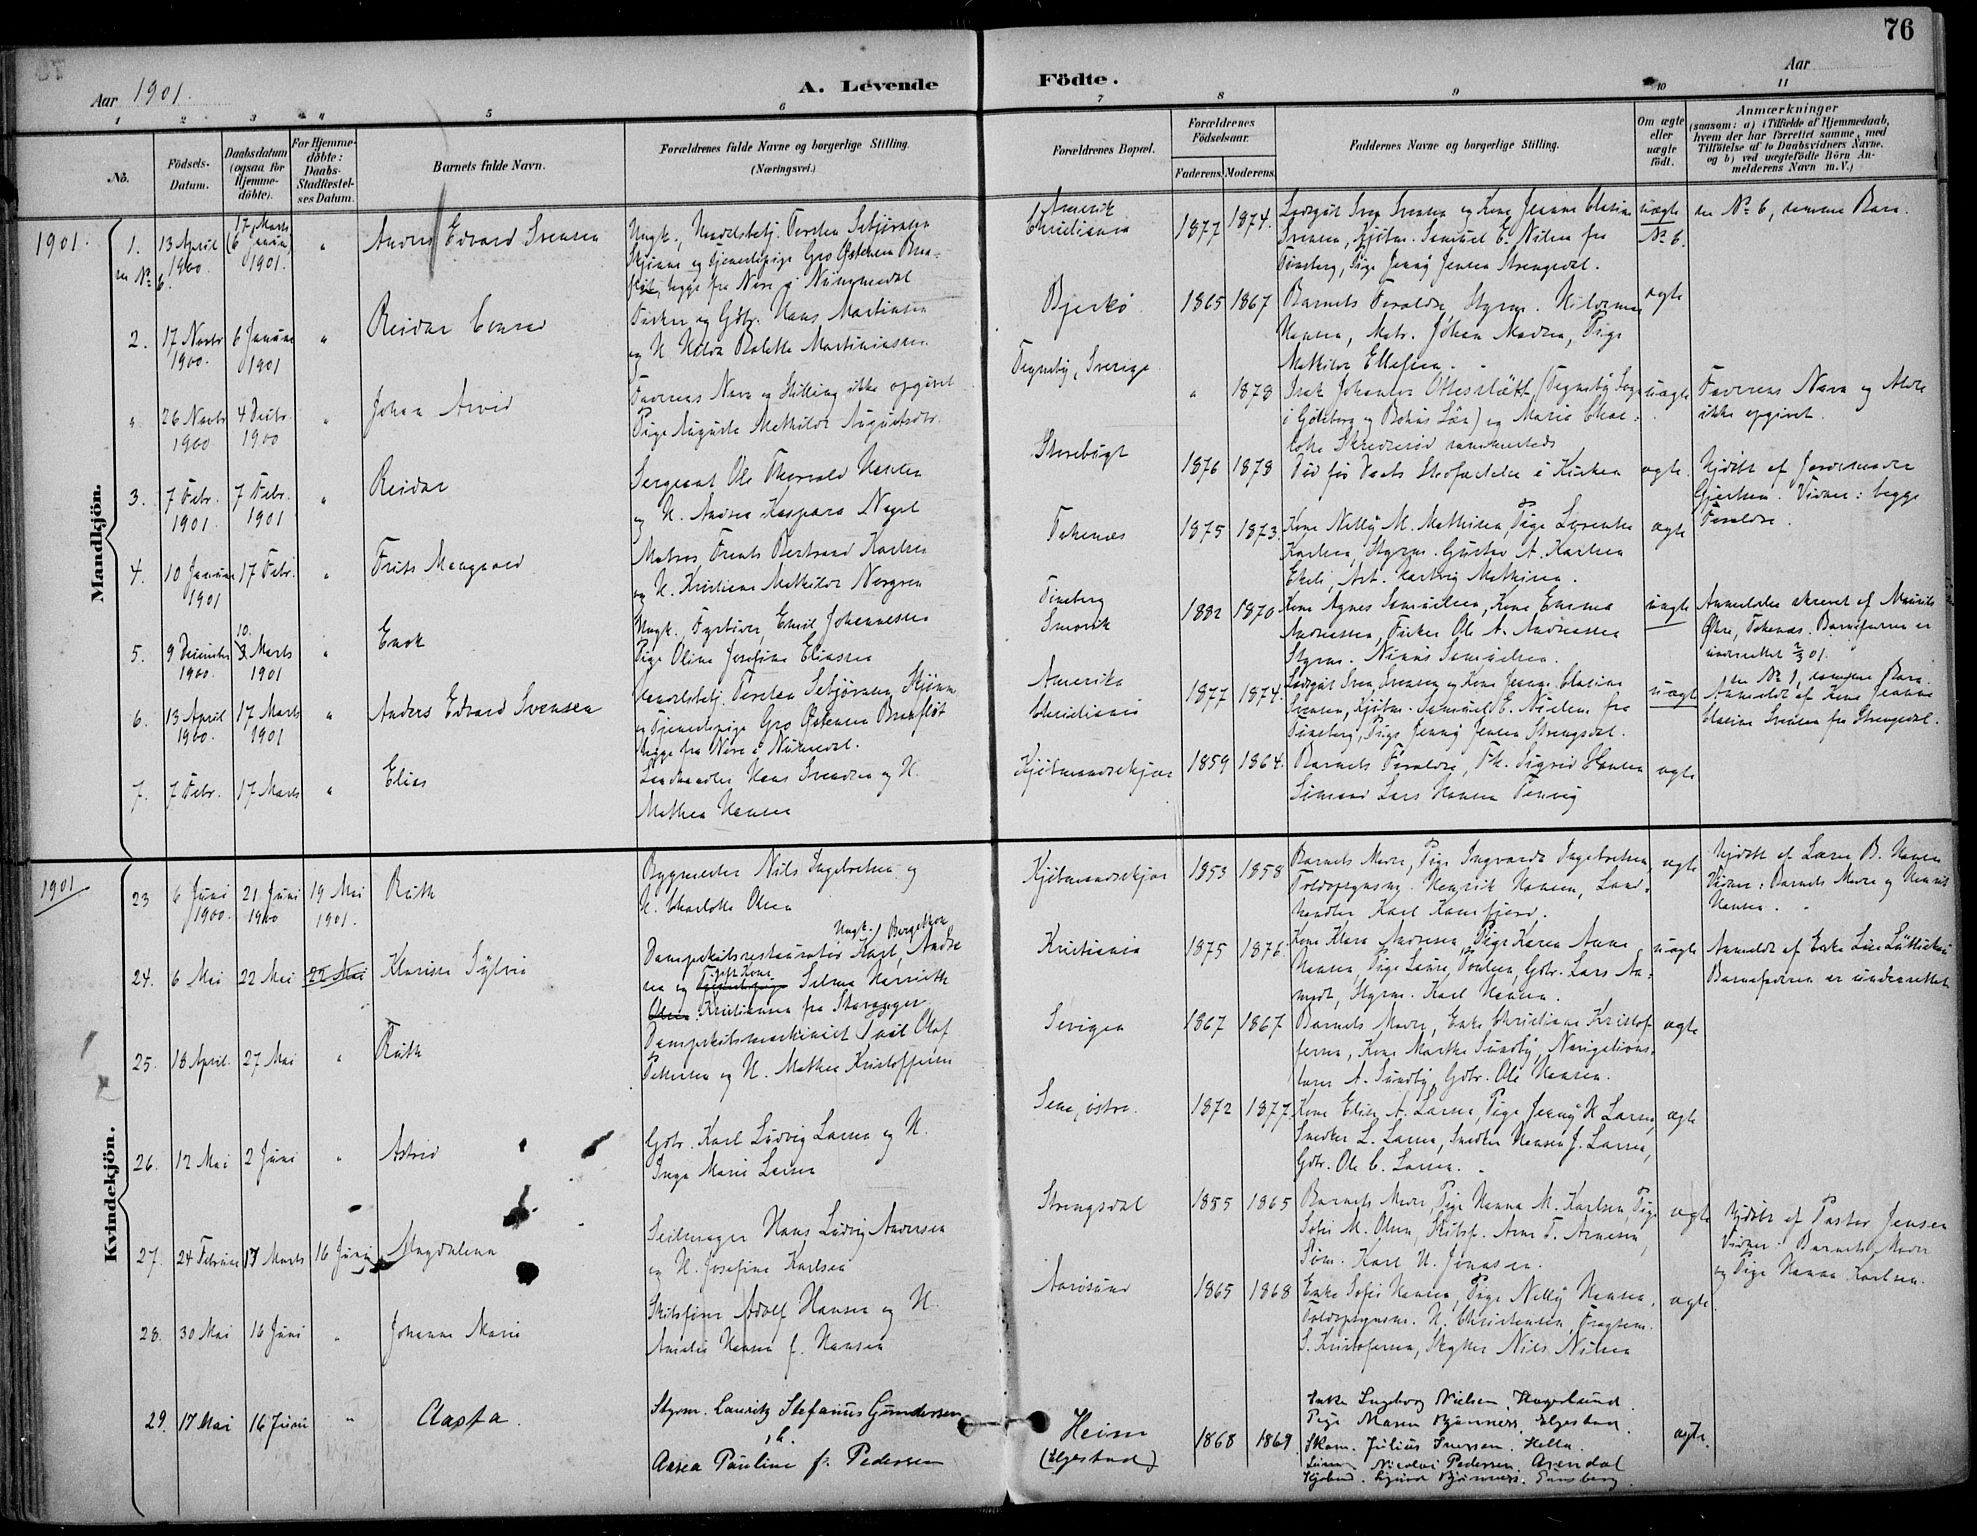 76
Aar 1901.
A. Levende
Födte.
Aar
1 2 3 4 5 6 7 8 9 10 11
No.
Födsels-
Datum.
Daabsdatum
(ogsaa for
Hjemme-
döbte).
For Hjemme-
döbte:
Daabs-
Stadfæstel-
ses Datum.
Barnets fulde Navn.
Forældrenes fulde Navne og borgerlige Stilling.
(Næringsvei.)
Forældrenes Bopæl.
Forældrenes
Födselsaar.
Faderens. Moderens.
Faddernes Navne og borgerlige Stilling.
Om ægte
eller
uægte
født.
Anmærkninger
(saasom: a) i Tilfælde af Hjemmedaab,
hvem der har forrettet samme, med
Tilføielse af to Daabsvidners Navne,
og b) ved uægtefödte Börn An-
melderens Navn m.V.)
Mandkjön.
1901.
1.
se No 6.
13 April
1900.
17 Marts
(6 Januar)
1901.
"
Anders Edvard Svensen
Ungk., Handelsbetj. Torsten Sebjørnsen
Skjønne og Tjenestepige Gro Østensen
begge fra Nore i Numedal
Amerika
Christiania
1877
1874.
Svend Svensen og Kone Jeanne Clasine
Svensen, Kjøbm. Samuel E. Nilsen fra
Tønsberg, Pige Jenny Jensen Strengsdal.
uægte
No 6.
se No 6, samme Barn.
2.
17 Novbr
1900.
6 Januar
1901
"
Reidar Conrad
Fisker og Gdbr. Hans Martinsen
og H. Hilda Bolette Martiniussen
Bjerkø
1865
1867
Barnets Forældre, Styrm. Hilormus
Hansen, Matr. Johan Madsen, Pige
Mathilde Ellefsen.
ægte
26 Novbr
1900
4 Decbr.
1900
"
Johan Arvid
Faderens Navn og Stilling ikke opgivet
Pige Augusta Mathilda Augustsdtr.
Tegneby, Sverige
"
1878
Isak Johansson Ottesslätt (Tegneby Sogn
i Göteborg og Bohus Län) og Maria Char-
lotta sammesteds
uægte
Faderens Navn og Alder
ikke opgivet.
3.
7 Febr.
1901.
7 Febr.
1901
"
Reidar
Sergeant Ole Thorvald Hansen
og H. Andrea Kaspara Nagel
Storebugt
1876
1878
Død før Daabs Stadfæstelse i Kirken
ægte.
Hjdøbt af Jordemoder
Gjertsen. Vidner: begge
Forældre.
4.
10 Januar
1901
17 Febr.
"
Frits Maagaard
Matros Frants Bertrand Karlsen
og H. Kristiane Mathilde Norgren
Tokenæs
1875
1873.
Kone Nelly M. Mathisen, Pige Laurentse
Karlsen, Styrm. Gustav A. Karlsen
Ekeli, Arb. Hartvig Mathisen.
ægte
5.
9 December
1900.
10.
3. Marts
1901
"
Enok
Ungk., Fyrbøder, Emil Johannessen
Pige Oline Josefine Eliassen
Tønsberg
Smørvik
1882
1870
Kone Agnes Samuelsen, Kone Emma
Andreassen, Fisker Ole A. Andreassen
Styrm. Samuelsen.
uægte
Anmeldelse skrevet af
Økre, Tokenæs. Barnefaren er
underrettet 2/3 01.
6.
13 April
1900.
17 Marts
1901
"
Anders Edvard Svensen
Handelsbetj. Torsten Sebjørnsen Skjønne
og Tjenestepige Gro Østensen
begge fra Nore i Numedal.
Amerika
Christiania
1877
1874.
Svend Svensen og Kone Jeanne Clasine
Svensen, Kjøbm. Samuel E. Nielsen fra
Tønsberg, Pige Jenny Jensen Strengsdal.
uægte
se No 1, samme Barn.
Anmeldt af Kone Jeanne
Clasine Svensen fra Strengsdal.
7.
7 Febr.
17 Marts
"
Elias
Landhandler Hans Svendsen og H.
Mathea Hansen
Kjøbmandskjær
1859
1864.
Barnets Forældre, Frk. Sigrid Hansen
Sømand Lars Hansen Tenvig
ægte
Kvindekjön.
1901
23
6 Juni
1900.
21 Juni
1900
19 Mai
1901.
Ruth
Bygmester Nils Ingebretsen og
H. Charlotte Olsen
Kjøbmandskjær
1853
1858
Barnets Moder, Pige Ingvarda Ingebretsen,
Toldopsynsm. Henrik Hansen, Land-
handler Karl Kamfjord.
ægte
Hjdøbt af Laura B. Hansen
Vidner: Barnets Moder og Henrik
Hansen.
24.
6 Mai
22 Mai
22 Mai
Klarisse Sylvia
Ungk. Bergesson
Dampskibsrestauratør Karl, Andre-
sen og Tjenestepige Selma Henriette
Olsen Kristiansen fra Stavanger
Kristiania
1875
1876.
Kone Klara Andresen, Pige Karen Anne
Hansen, Pige Laura Poulsen, Gdbr. Lars Aa-
modt, Styrm. Karl Hansen.
uægte
Anmeldt af Enke Lise
Barnefaderen er underrettet
25.
18 April.
27 Mai
"
Ruth
Dampskibsmaskinist Paul Olaf
Pettersen og H. Mathea Kristoffersen
Sevigen
1867
1867.
Barnets Moder, Enke Christiane Kristof-
fersen, Kone Marthe Sundby, Navigations-
lærer A. Sundby, Gdbr. Ole Hansen.
ægte
26.
12 Mai
2 Juni
"
Astrid
Gdbr. Karl Ludvig Larsen og H.
Inga Marie Larsen
Sem, østre.
1872
1877.
Kone Elise A. Larsen, Pige Jenny H Larsen,
Snedker L. Larsen, Snedker Hansen J. Larsen,
Gdbr. Ole C. Larsen.
ægte
27.
24 Februar
17 Marts
16 Juni
Magdalena
Seilmager Hans Ludvig Andersen
og H. Josefine Karlsen
Strengsdal
1855
1865
Barnets Moder, Pige Hanna M. Karlsen, Pige
Sofie M. Olsen, Skibsf. Arne T. Arnesen,
Tøm. Karl H. Jonassen.
ægte
Hjdøbt af Pastor Jensen
Vidner: Barnets Moder
og Pige Hanna Karlsen.
28.
30 Mai
16 Juni
"
Johanne Marie
Skibsfører Adolf Hansen og H.
Amalie Hansen f. Hansen
Aarøsund
1865
1868
Enke Sofie Hansen, Pige Nelly Hansen,
Toldopsynsm. H. Christensen, Fragtem.
S. Kristofersen, Skytter Nils Nilsen
ægte.
29.
17 Mai
16 Juni
"
Aasta.
Styrm. Lauritz Stefanus Gundersen
o. h.
Aasea Pauline f. Pedersen
Heim
(Elgestad)
1868
1869.
Enke Ingeborg Nielsen, Hagelund.
Pige Maren Bjønnes, Elgestad.
Skom. Julius Iversen. Hella.
Nicolai Pedersen. Arendal
Sigurd Bjønnes. Tønsberg.
ægte.